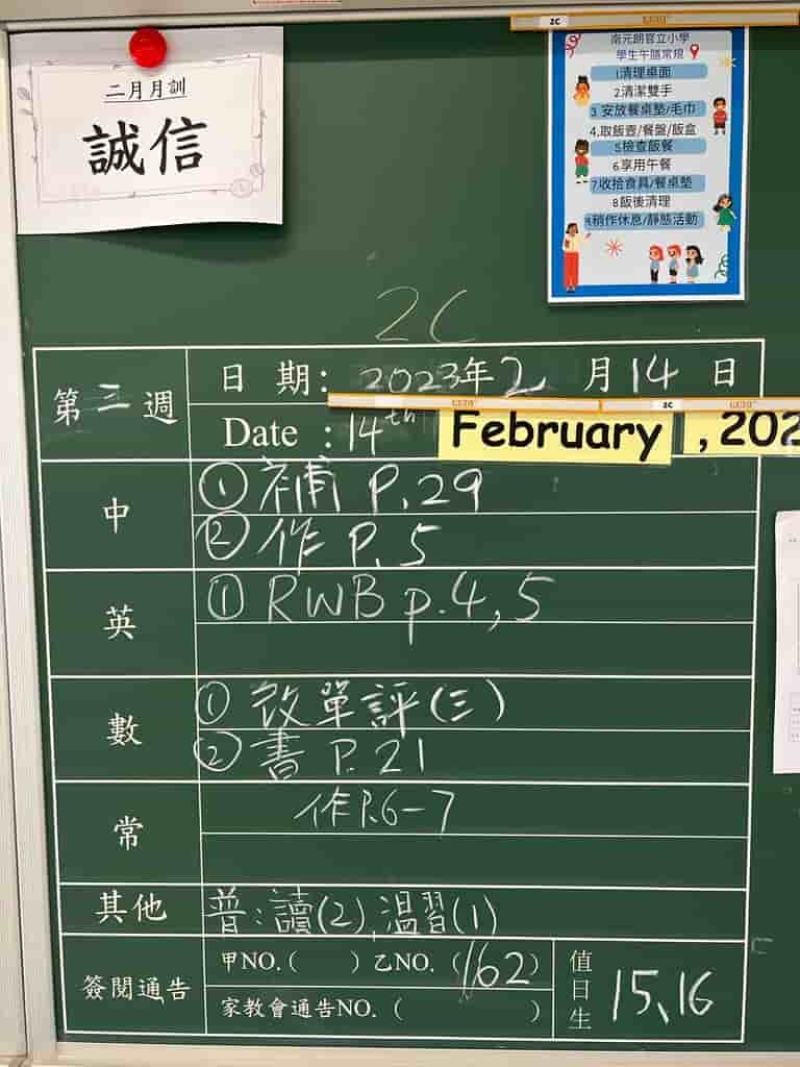 二月月訓
誠信
2C
南元朗官立小學
學生午膳常規
1清理桌面
2清潔雙手
3.安放餐桌墊/毛巾
4.取飯壺/餐盤/飯盒
5檢查飯餐
6享用午餐
7收拾食具/餐桌墊
8飯後清理
9.稍作休息/靜態活動
2C
第三週
日期: 2023年2月14日
2C
Date : 14th February , 202
中
① 補 P.29
② 作 P.5
英
① RWB p.4,5
數
① 改單評(三)
② 書 P.21
常
作P.6-7
其他
普:讀(2),溫習(1)
簽閱通告
甲NO.( ) 乙NO.(162)
家教會通告NO.( )
值日生
15、16